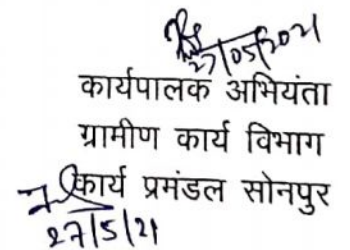 27/05/2021
कार्यपालक अभियंता
ग्रामीण कार्य विभाग
कार्य प्रमंडल सोनपुर
27/5/21